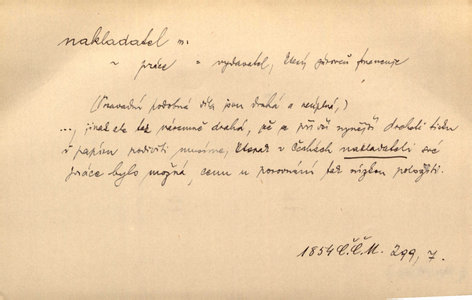 nakladatel m.
~ práce = vydavatel, který původců honoruje
(Původní podobná díla jsou drahá a neúplná,)
..., jinak ale tak náramně drahá, že se při vší nynější drahotě tisku
i papíru podiviti musíme, kterak v Čechách nakladateli své
práce bylo možná, cenu u porovnání tak nízkou položiti.
1854 Č.Č.M. 299, 7.